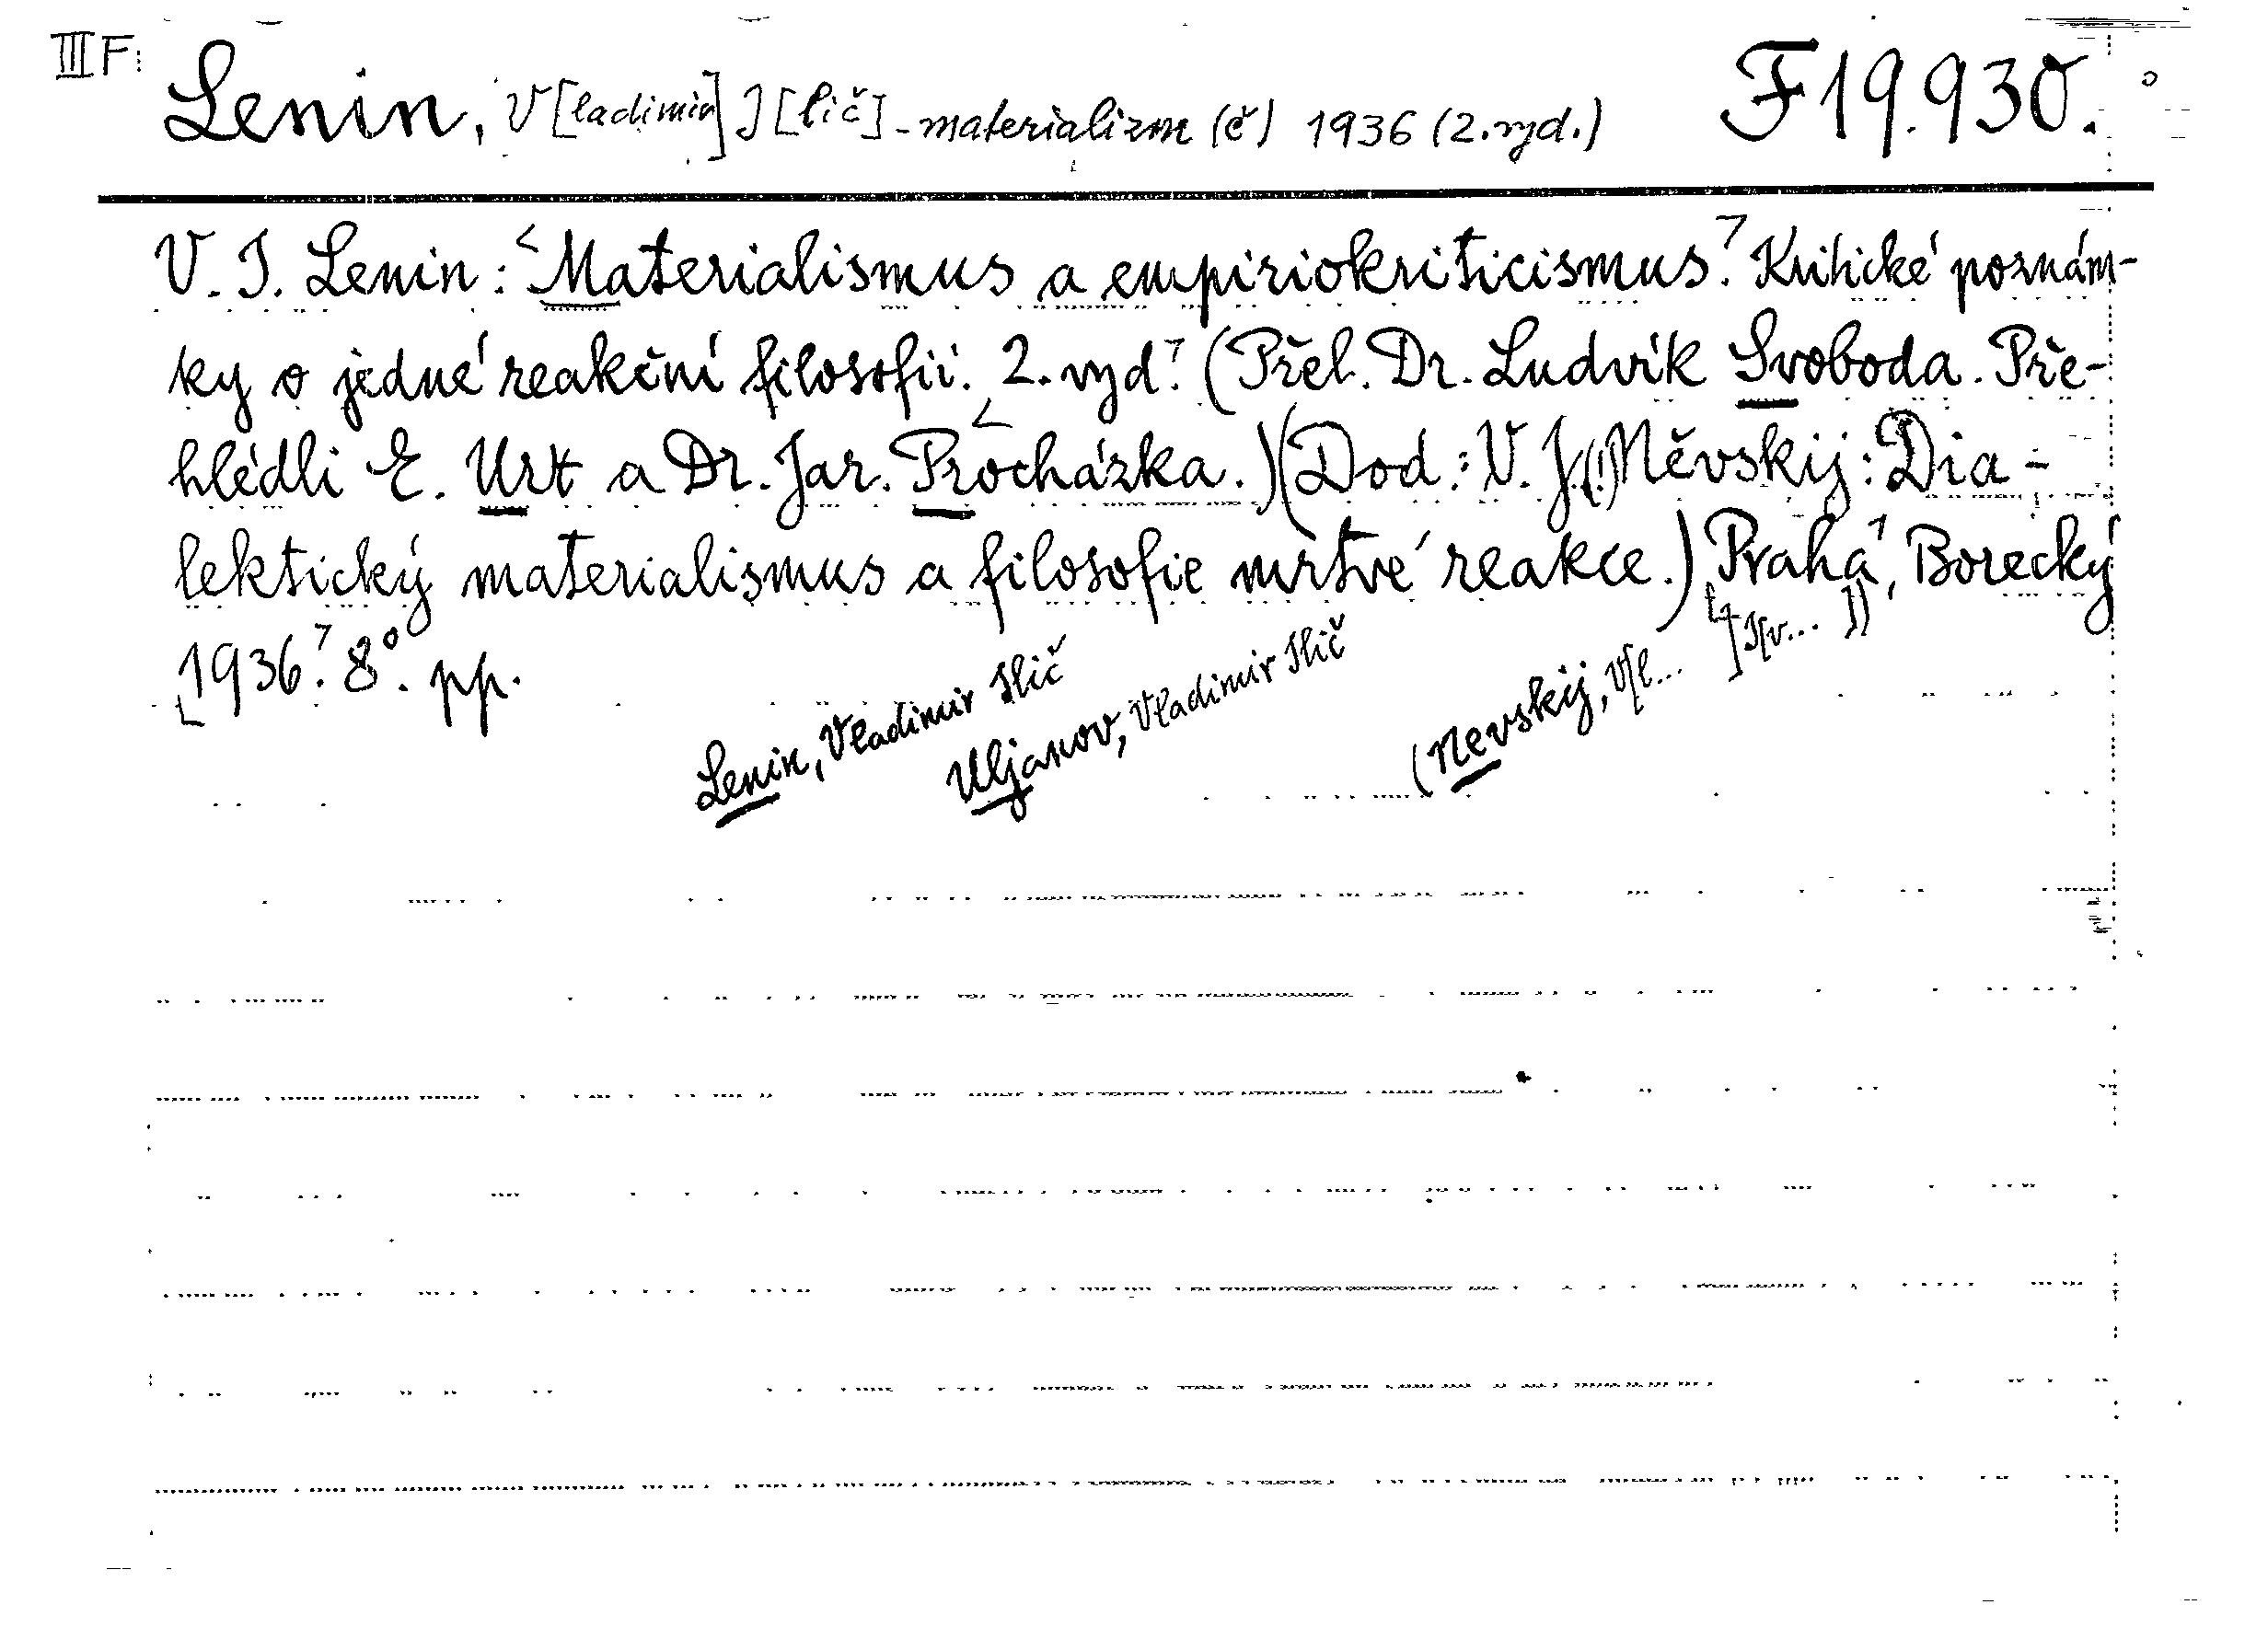 III F:
Lenin, V[ladimir] I[lič] - materializm (č) 1936 (2.vyd.) F 19.930.
V. I. Lenin: Materialismus a empiriokriticismus. Kritické poznám-
ky o jedné reakční filosofii. 2. vyd. (Přel. Dr. Ludvík Svoboda. Pře-
hlédli E. Urx a Dr. Jar. Procházka.) (Dod.: V. I.(!) Něvskij: Dia-
lektický materialismus a filosofie mrtvé reakce.) Praha, Borecký
1936. 8°. pp.
Lenin, Vladimir Ilič
Uljanov, Vladimir Ilič
(Nevskij, V[l... ] I[v... ])